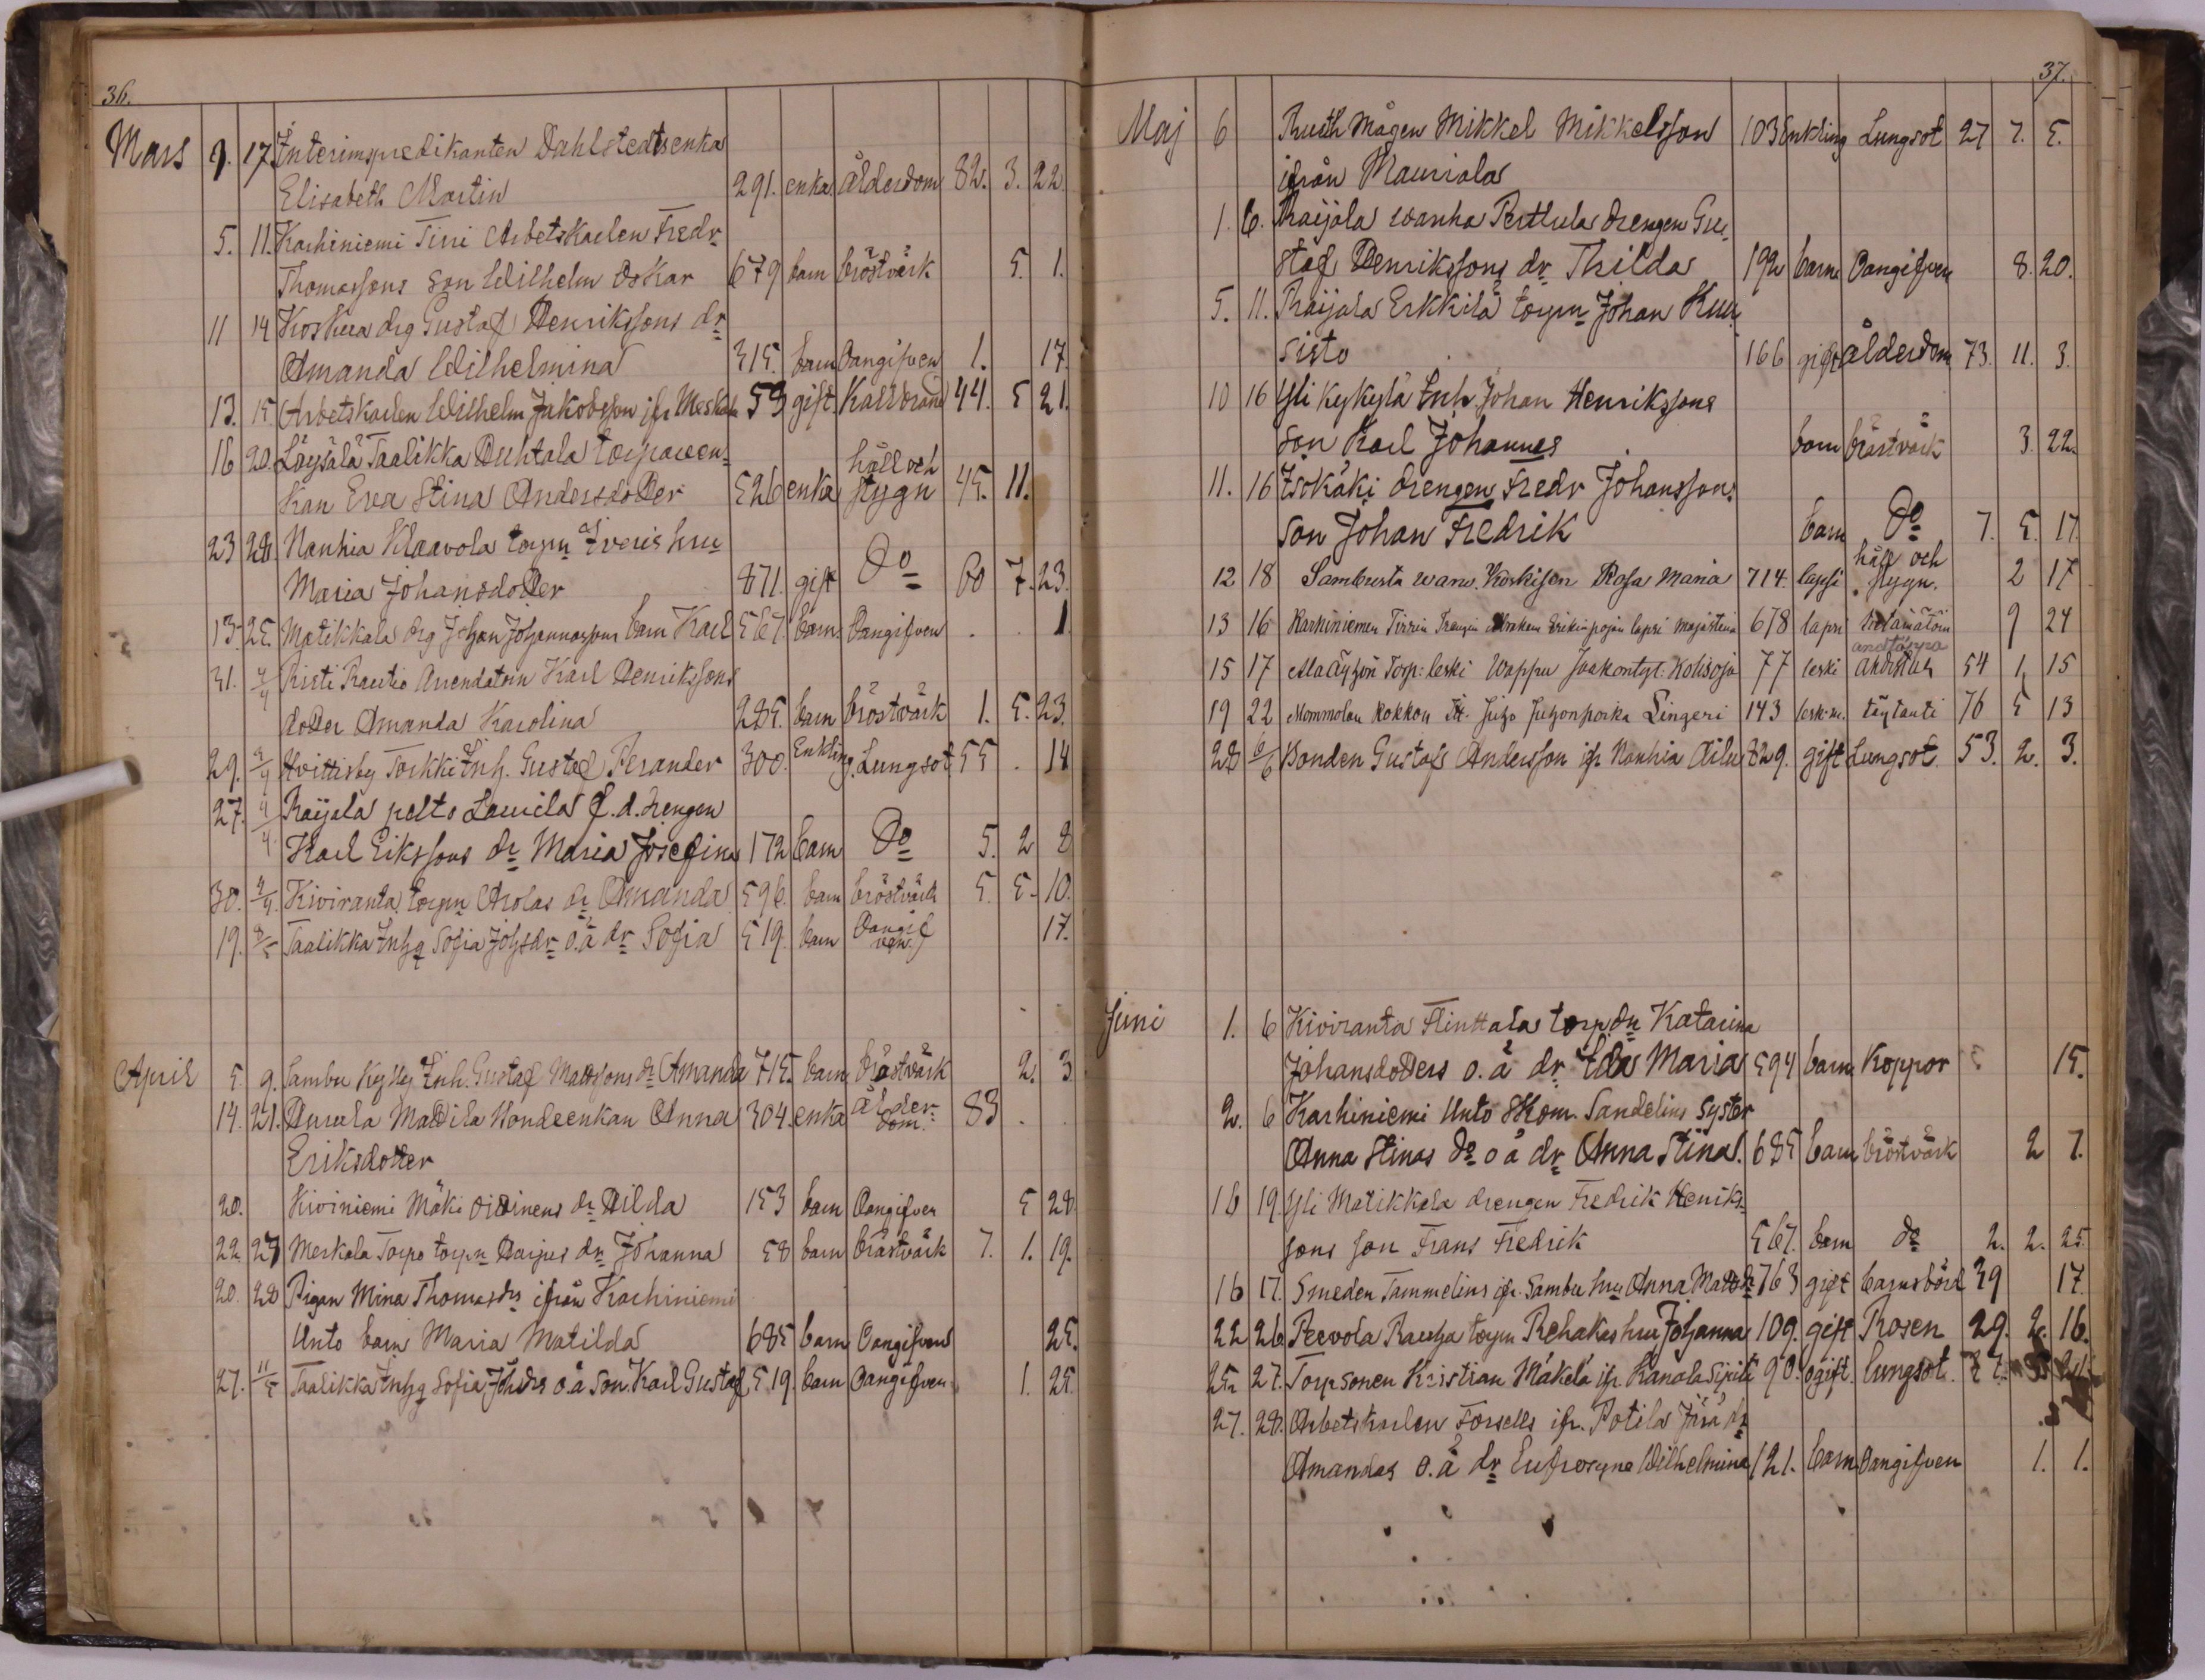 36.
Mars 9. 17. Interimspredikanten Dahlstedts enka
Elisabeth Martin 291. enka ålderdom 82. 3. 22.
5. 11. Karhiniemi Tirri Arbetskarlen Fredr
Thomassons son Wilhelm Oskar 679 barn bröstvärk 5. 1.
11 14 Koskua drg Gustaf Henrikssons dr
Amanda Wilhelmina 315. barn Oangifven 1. 17.
13. 15. Arbetskarlen Wilhelm Jakobsson ifr Meskala 59 gift Kallbrand 44. 5 21.
16 20. Löysälä Taalikka Huhtala torpareen-
kan Eva Stina Andersdotter 526 enka håll och stygn 45. 11.
23 28. Nanhia Klaavola torpn Iveris hru
Maria Johansdotter 871. gift Do 60 7. 23.
13. 25. Matikkala drg Johan Johannessons barn Karl 567. barn Oangifven . . 1
31. 4/4 Risti Rautio Arrendatorn Karl Henrikssons
dotter Amanda Karolina 285. barn bröstvärk 1. 5. 23.
29. 4/4 Hvittisby Torkki Inh. Gustaf Ferander 300. Enkling Lungsot 55 . 14
27. 4/4 Raijala pelto Laurila f.d. drengen
Karl Erikssons dr Maria Josefina 172 barn Do 5. 2 8
30. 4/4. Kiviranta torpn Arolas dr Amanda 596. barn bröstvärk 5. 5. 10.
19. 8/5 Taalikka Inhq Sofia Johsdr o.ä dr Sofia 519. barn Oangifven 17.
April 5. 9. Sambu Kylly Inh. Gustaf Mattssons dr Amanda 715. barn bröstvärk 2. 3
14. 21. Aurula Mattila Bondeenkan Anna 304. enka ålderdom. 83 . .
Eriksdotter
20. Kiviniemi Mäki dr Hilda 153 barn Oangifven 5 28.
22. 27 Meskala Torpo torpn Harjus dr Johanna 58 barn bröstvärk 7. 1. 19.
20. 28 Pigan Mina Thomasdrs ifrån Karhiniemi
Unto barn Maria Matilda 685 barn Oangifven 25.
27. 11/5 Taalikka Inhq Sofia Johsdrs o.ä son Karl Gustaf 519. barn Oangifven 1. 25.
37.
Maj 6 Ruuth Mågen Mikkel Mikkelsson 103 Enkling Lungsot 27 7. 5.
ifrån Mauriala
1. 6. Raijala wanha Perttula drengen Gu-
staf Henrikssons dr Thilda 192 barn Oangifven 8. 20.
5. 11. Raijala Erkkilä torpn Johan Kuu-
sisto 166 gift ålderdom 73. 11. 3.
10 16 Yli Kykylä Inh. Johan Henrikssons
son Karl Johannes barn bröstvärk 3. 22.
11. 16 Isokäki drengen Fredr Johanssons
son Johan Fredrik barn Do 7. 5. 17.
12 18 Sambusta warv. Koskisen Rosa Maria 714. lapsi håll och stygn. 2 17
13 16 Karhiniemen Tirrin Trengin Abraham Erikinpojan lapsi Majastiina 678 lapsi 9 24
15 17 Ala Torp: leski Wappu Jaakontyt: Kotisoja 77 leski andtäppa 54 1, 15
19 22 Mommolan Kokkon Juho Juhonpoika Lingeri 143 leski m. täytauti 76 5 13
28 6/6 Bonden Gustaf Andersson ifr Nanhia 829. gift Lungsot. 53. 2. 3.
Juni 1. 6 Kiviranta Flinttala torpdr Katarina
Johansdotters o.ä dr Ida Maria 594 barn Koppor 15.
2. 6 Karhiniemi Unto Skom. Sandelins syster
Anna Stinas do o ä dr Anna Stina. 685 barn bröstvärk 2 7.
16 19. Yli Matikkala drengen Fredrik Henriks-
sons son Frans Fredrik 567. barn do 2. 2. 25.
16 17. Smeden Tammelins ifr. Sambu hru Anna Mattsdr 763 gift barnsbörd 39 17.
22 26 Peevola Rauha torpn Rehakas hru Johanna 109. gift Rosen 29. 2. 16.
25. 27. Torpsonen Kristian Mäkelä ifr. Kanala Sipilä 90. ogift. lungsot.
27. 28. Arbetskarlen Forsells ifr. Potila Jära dr
Amandas o.ä dr Eufrosyne Wilhelmina 121. barn Oangifven 1. 1.